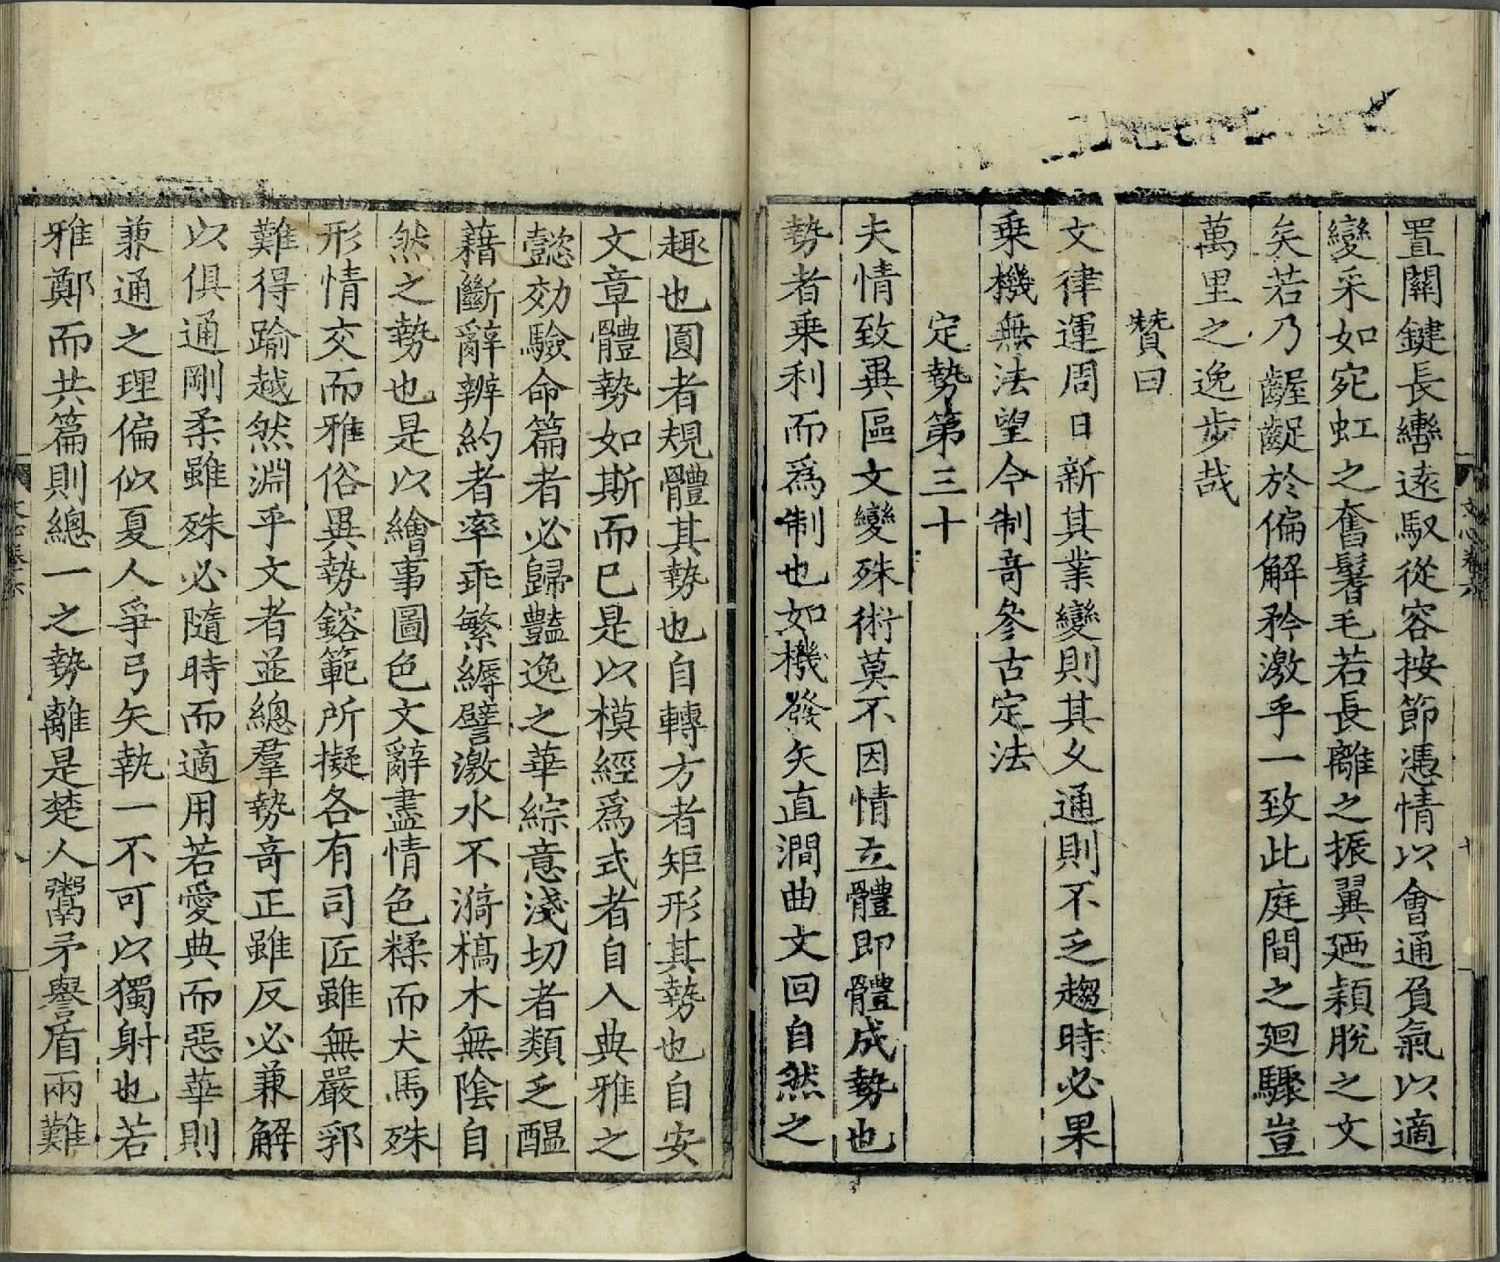 置關鍵長轡遠馭從容按節憑情以會通負氣以適
變采如宛虹之奮鬐毛若長離之振翼廼穎脫之文
矣若乃齷齪於偏解矜激乎一致此庭間之廻驟豈
萬里之逸步哉
贊曰
文律運周日新其業變則其文通則不乏趨時必果
乗機無法望今制竒參古定法
定勢第三十
夫情致異區文變殊術莫不因情立體即體成勢也
勢者乗利而爲制也如機發矢直澗曲文回自然之
趣也圓者規體其勢也自轉方者矩形其勢也自安
文章體勢如斯而已是以模經爲式者自入典雅之
懿効驗命篇者必歸豔逸之華綜意淺切者類乏醞
藉斷辭辨約者率乖繁縟譬激水不漪槁木無陰自
然之勢也是以繪事圖色文辭盡情色糅而犬馬殊
形情交而雅俗異勢鎔範所擬各有司匠雖無嚴郛
難得踰越然淵乎文者並總羣勢竒正雖反必兼解
以俱通剛柔雖殊必隨時而適用若愛典而惡華則
兼通之理偏似夏人爭弓矢執一不可以獨射也若
雅鄭而共篇則總一之勢離是楚人鬻矛譽盾兩難